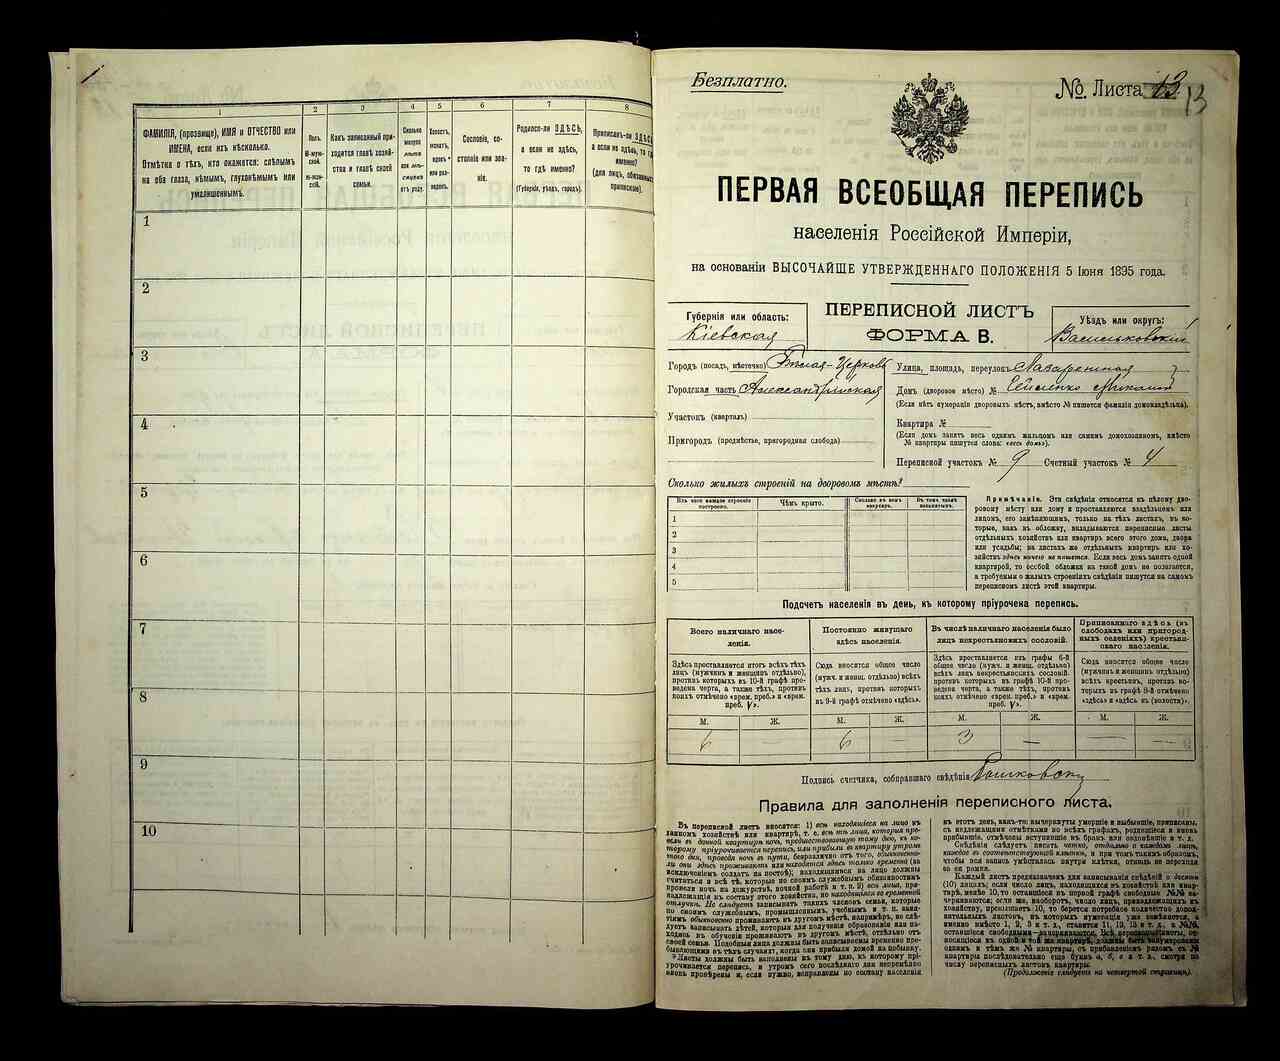 1
2
3
4
5
6
7
8
ФАМИЛІЯ, (прозвище), ИМЯ и ОТЧЕСТВО или
ИМЕНА, если ихъ нѣсколько.
Отмѣтка о тѣхъ, кто окажется: слѣпымъ
на оба глаза, нѣмымъ, глухонѣмымъ или
умалишеннымъ.
Полъ.
М-муж-
ской.
Ж-жен-
скій.
Какъ записанный при-
ходится главѣ хозяй-
ства и главѣ своей
семьи.
Сколько
минуло
лѣтъ
или мѣ-
сяцевъ
отъ роду.
Холостъ,
женатъ,
вдовъ
или раз-
веденъ.
Сословіе, со-
стояніе или зва-
ніе.
Родился-ли ЗДѢСЬ,
а если не здѣсь,
то гдѣ именно?
(Губернія, уѣздъ, городъ).
Приписанъ-ли ЗДѢСЬ
а если не здѣсь, то гдѣ
именно?
(для лицъ, обязанныхъ
припискою).
1
2
3
4
5
6
7
8
9
10
Безплатно.
№ Листа 13
13
ПЕРВАЯ ВСЕОБЩАЯ ПЕРЕПИСЬ
населенія Россійской Имперіи,
на основаніи ВЫСОЧАЙШЕ УТВЕРЖДЕННАГО ПОЛОЖЕНІЯ 5 Іюня 1895 года.
Губернія или область:
Кіевская
ПЕРЕПИСНОЙ ЛИСТЪ
ФОРМА В.
Уѣздъ или округъ:
Васильковскій
Городъ (посадъ, мѣстечко) Бѣлая-Церковь
Городская часть Александрійская
Участокъ (кварталъ)
Пригородъ (предмѣстье, пригородная слобода)
Улица, площадь, переулокъ
Домъ (дворовое мѣсто) №
(Если нѣтъ нумераціи дворовыхъ мѣстъ, вмѣсто № пишется фамилія домовладѣльца).
Квартира №
(Если домъ занятъ весь однимъ жильцомъ или самимъ домохозяиномъ, вмѣсто
№ квартиры пишутся слова: «весь домъ»).
Переписной участокъ № 9 Счетный участокъ № 4
Сколько жилыхъ строеній на дворовомъ мѣстѣ?
Изъ чего каждое строеніе
построено.
Чѣмъ крыто.
Сколько въ немъ
квартиръ.
Въ томъ числѣ
незанятыхъ.
1
2
3
4
5
Примѣчаніе. Эти свѣдѣнія относятся къ цѣлому дво-
ровому мѣсту или дому и проставляются владѣльцемъ или
лицомъ, его замѣняющимъ, только на тѣхъ листахъ, въ ко-
торые, какъ въ обложку, вкладываются переписные листы
отдѣльныхъ хозяйствъ или квартиръ всего этого дома, двора
или усадьбы; на листахъ же отдѣльныхъ квартиръ или хо-
зяйствъ здѣсь ничего не пишется. Если весь домъ занятъ одной
квартирой, то особой обложки на такой домъ не полагается,
а требуемыя о жилыхъ строеніяхъ свѣдѣнія пишутся на самомъ
переписномъ листѣ этой квартиры.
Подсчетъ населенія въ день, къ которому пріурочена перепись.
Всего наличнаго насе-
ленія.
Постоянно живущаго
здѣсь населенія.
Въ числѣ наличнаго населенія было
лицъ некрестьянскихъ сословій.
Приписаннаго здѣсь (въ
слободахъ или пригород-
ныхъ селеніяхъ) крестьян-
скаго населенія.
Здѣсь проставляется итогъ всѣхъ тѣхъ
лицъ (мужчинъ и женщинъ отдѣльно),
противъ которыхъ въ 10-й графѣ про-
ведена черта, а также тѣхъ, противъ
коихъ отмѣчено «врем. преб.» и «врем.
преб. V».
Сюда вносится общее число
(мужч. и женщ. отдѣльно) всѣхъ
тѣхъ лицъ, противъ которыхъ
въ 9-й графѣ отмѣчено «здѣсь».
Здѣсь проставляется изъ графы 6-й
общее число (мужч. и женщ. отдѣльно)
всѣхъ лицъ некрестьянскихъ сословій,
противъ которыхъ въ графѣ 10-й про-
ведена черта, а также тѣхъ, противъ
коихъ отмѣчено «врем. преб.» и «врем.
преб. V».
Сюда вносится общее число
(мужчинъ и женщинъ отдѣльно)
всѣхъ крестьянъ, противъ ко-
торыхъ въ графѣ 8-й отмѣчено
«здѣсь» и «здѣсь въ (волости)».
М. Ж. М. Ж. М. Ж. М. Ж.
6 — 6 — 3 — — —
Подпись счетчика, собиравшаго свѣдѣнія
Правила для заполненія переписного листа.
Въ переписной листъ вносятся: 1) всѣ находящіеся на лицо въ
данномъ хозяйствѣ или квартирѣ, т. е. всѣ тѣ лица, которыя про-
вели въ данной квартирѣ ночь, предшествовавшую тому дню, къ ко-
торому пріурочивается перепись, или прибыли въ квартиру утромъ
того дня, проведя ночь въ пути, безразлично отъ того, обыкновенно-
ли они здѣсь проживаютъ или находятся здѣсь только временно (за
исключеніемъ солдатъ на постоѣ); находящимися на лицо должны
считаться и всѣ тѣ, которые по своимъ служебнымъ обязанностямъ
провели ночь на дежурствѣ, ночной работѣ и т. п. 2) всѣ лица, при-
надлежащія къ составу этого хозяйства, но находящіяся во временной
отлучкѣ. Не слѣдуетъ записывать такихъ членовъ семьи, которые
по своимъ служебнымъ, промышленнымъ, учебнымъ и т. п. заня-
тіямъ обыкновенно проживаютъ въ другомъ мѣстѣ, напримѣръ, не слѣ-
дуетъ записывать дѣтей, которыя для полученія образованія или на-
ходясь въ обученіи проживаютъ въ другомъ мѣстѣ, отдѣльно отъ
своей семьи. Подобныя лица должны быть записываемы временно пре-
бывающими въ тѣхъ случаяхъ, когда они прибыли домой на побывку.
Листы должны быть заполнены къ тому дню, къ которому прі-
урочивается перепись, и утромъ сего послѣдняго дня непремѣнно
вновь провѣрены и, если нужно, исправлены по составу населенія
въ этотъ день, какъ-то: вычеркнуты умершіе и выбывшіе, приписаны,
съ надлежащими отмѣтками во всѣхъ графахъ, родившіеся и вновь
прибывшіе, отмѣчены вступившіе въ бракъ или овдовѣвшіе и т. д.
Свѣдѣнія слѣдуетъ писать четко, отдѣльно о каждомъ лицѣ,
каждое въ соотвѣтствующей клѣткѣ, и при томъ такимъ образомъ,
чтобы вся запись умѣсталась внутри клѣтки, отнюдь не переходя
за ея рамки.
Каждый листъ предназначенъ для записыванія свѣдѣній о десяти
(10) лицахъ; если число лицъ, находящихся въ хозяйствѣ или квар-
тирѣ, менѣе 10, то остающіеся въ первой графѣ свободные №№ за-
черкиваются; если же, наоборотъ, число лицъ, принадлежащихъ къ
хозяйству, превышаетъ 10, то берется потребное количество допол-
нительныхъ листовъ, въ которыхъ нумерація уже измѣняется, а
именно вмѣсто 1, 2, 3 и т. д., ставится 11, 12, 13 и т. д., а №№,
остающіеся свободными—зачеркиваются. Всѣ переписные листы, от-
носящіеся къ одной и той же квартирѣ, должны быть занумерованы
однимъ и тѣмъ же № квартиры, съ прибавленіемъ рядомъ съ №
квартиры послѣдовательно еще буквъ а, б, в и т. д., смотря по
числу переписныхъ листовъ квартиры.
(Продолженіе слѣдуетъ на четвертой страницѣ).